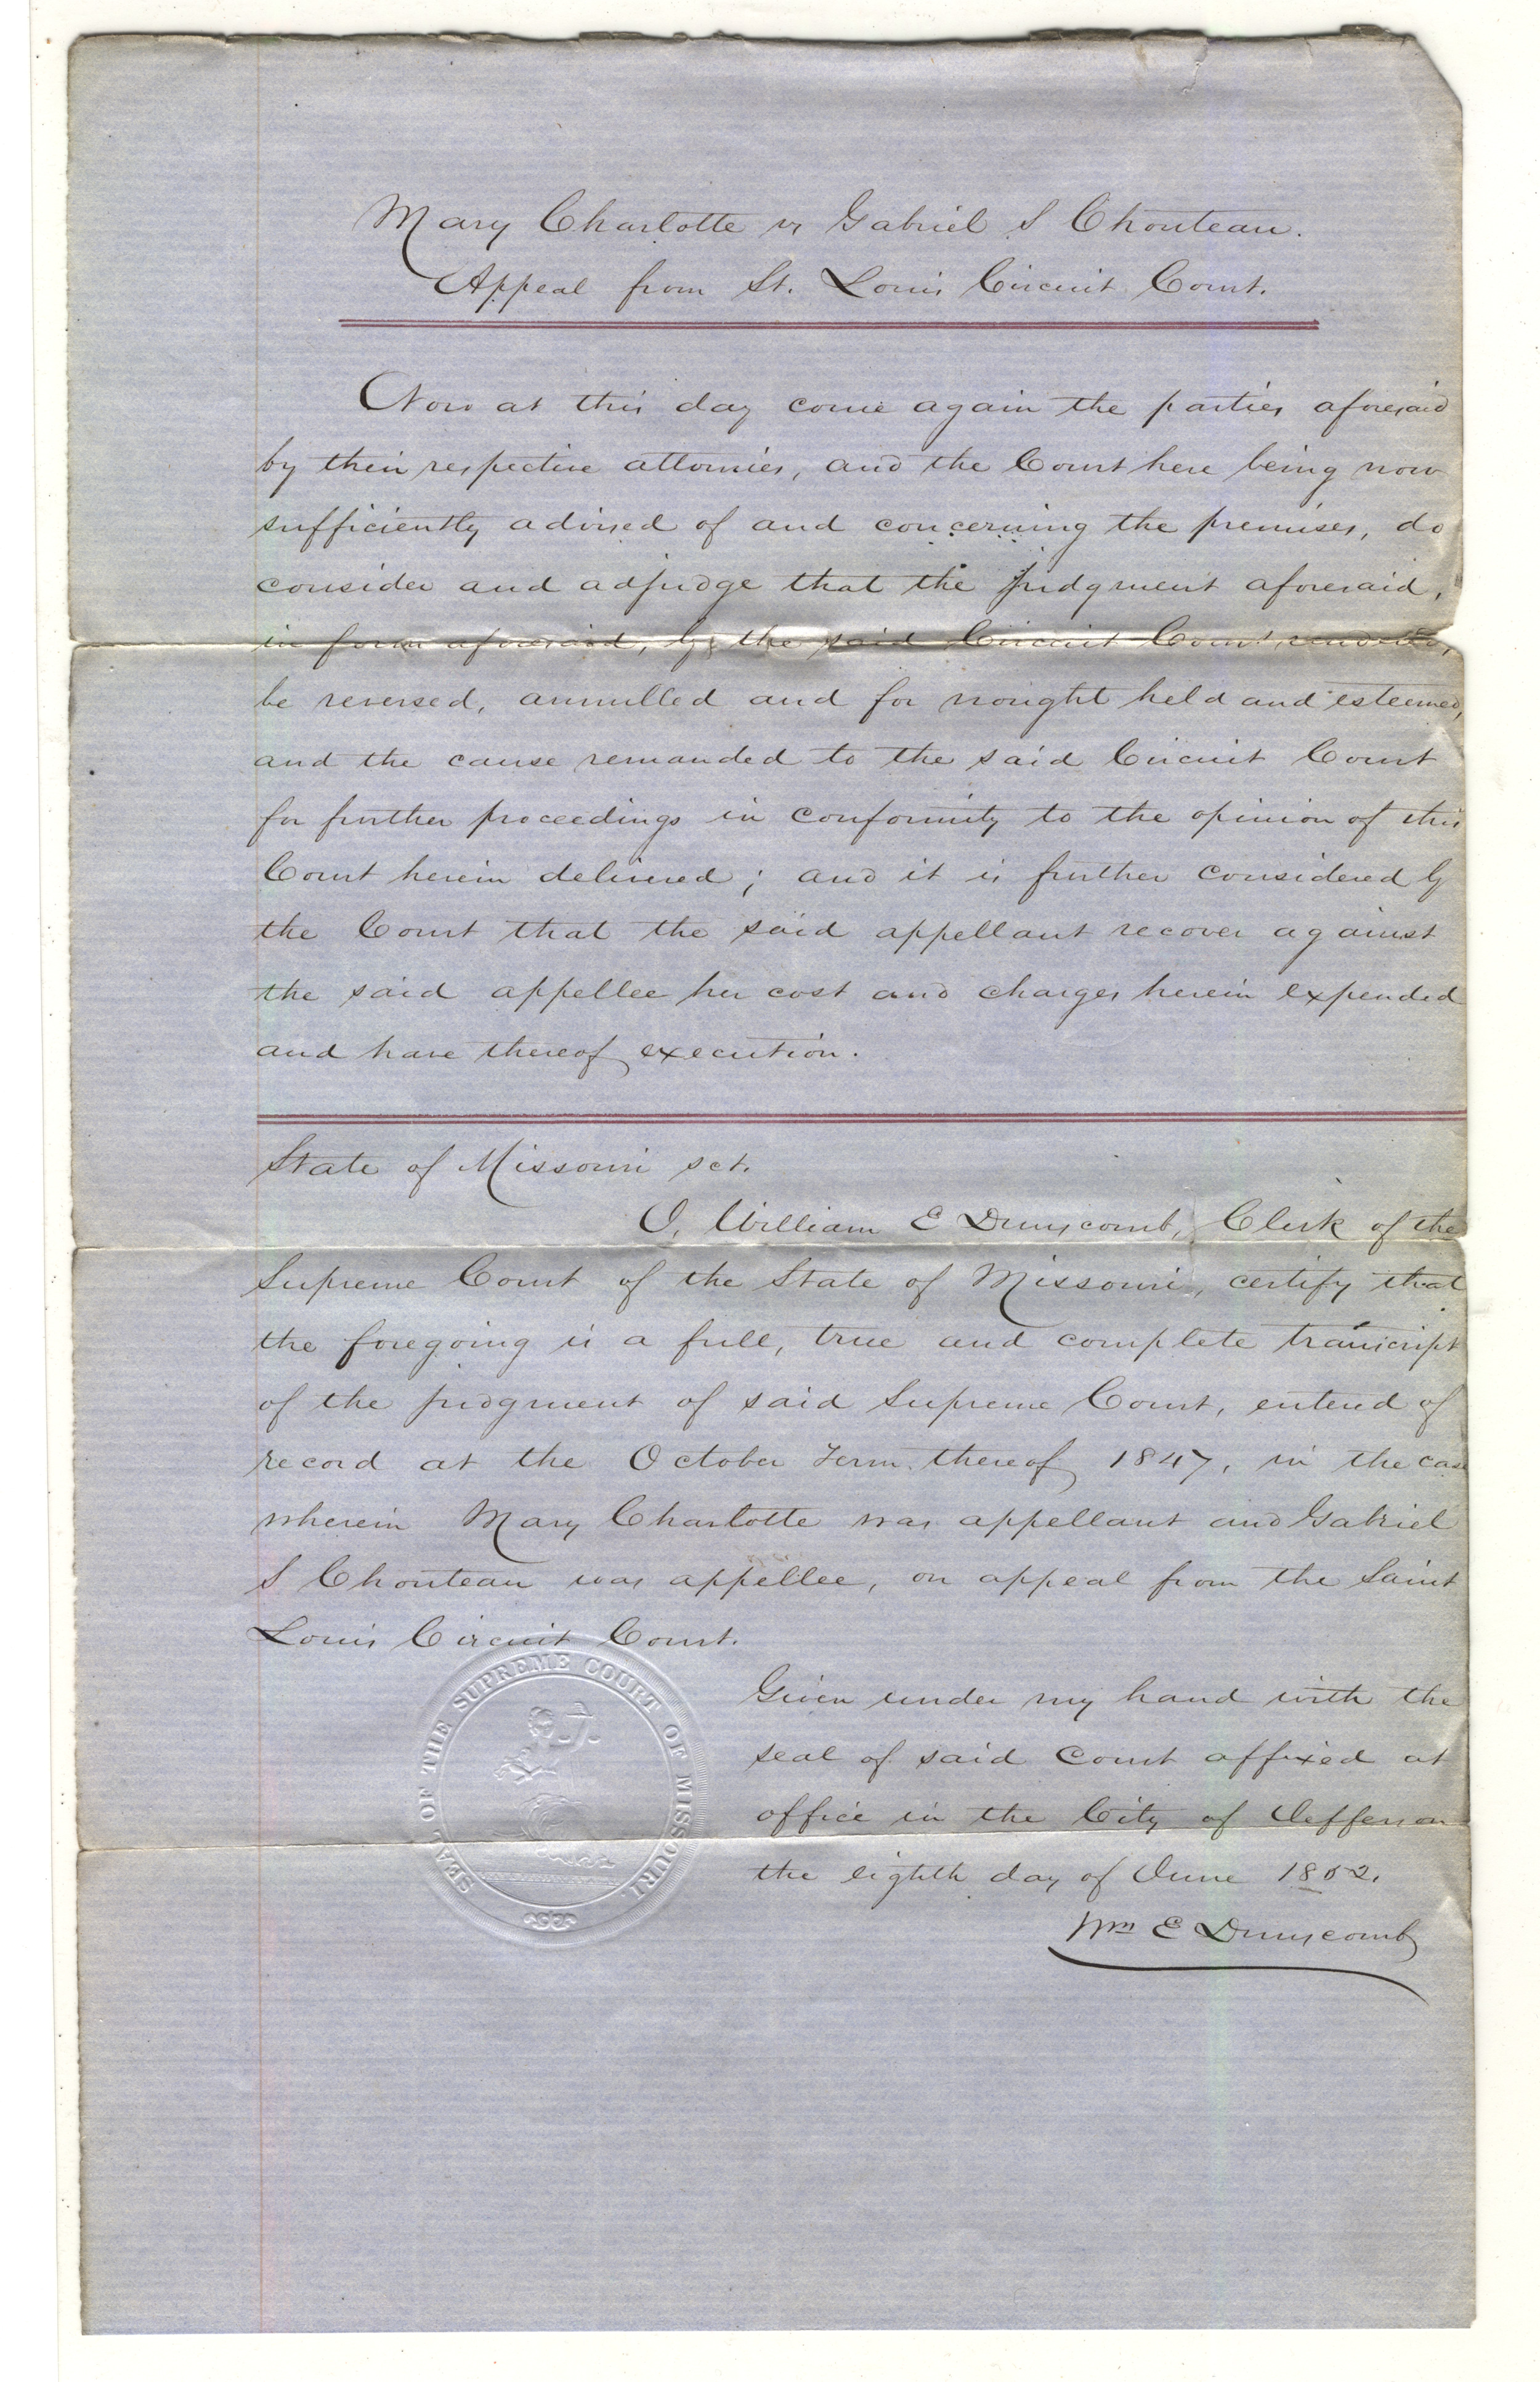 Mary Charlotte vs Gabriel S Chouteau.
Appeal from St. Louis Circuit Court.
Now at this day come again the parties aforesaid
by their respective attornies, and the Court here being now
sufficiently advised of and concerning the premises, do
consider and adjudge that the judgment aforesaid,
in form aforesaid, by the said Circuit Court rendered,
be reversed, annulled and for nought held and esteemed,
and the cause remanded to the said Circuit Court
for further proceedings in conformity to the opinion of this
Court herein delivered; and it is further considered by
the Court that the said appellant recover against
the said appellee her cost and charges herein expended
and have thereof execution.
State of Missouri sct.
I, William E Dunscomb, Clerk of the
Supreme Court of the State of Missouri, certify that
the foregoing is a full, true and complete transcript
of the judgment of said Supreme Court, entered of
record at the October Term thereof 1847, in the case
wherein Mary Charlotte was appellant and Gabriel
S Chouteau was appellee, on appeal from the Saint
Louis Circuit Court.
SEAL OF THE SUPREME COURT OF MISSOURI.
Given under my hand with the
seal of said Court affixed at
office in the City of Jefferson
the eighth day of June 1852.
Wm E Dunscomb